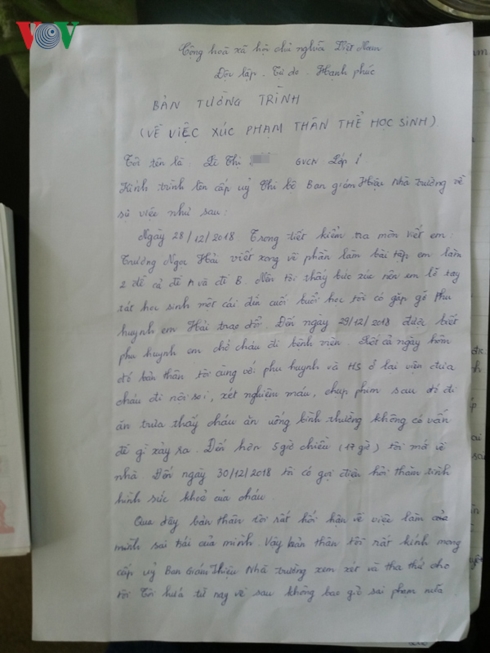 VOV
Cộng hoà xã hội chủ nghĩa Việt Nam
Độc lập. Tự do. Hạnh phúc
BẢN TƯỜNG TRÌNH
(VỀ VIỆC XÚC PHẠM THÂN THỂ HỌC SINH)
Tôi tên là Lê Thị GVCN Lớp 1
Kính trình lên cấp uỷ Chi bộ Ban giám Hiệu Nhà trường về
sự việc như sau:
Ngày 28/12/2018 Trong tiết kiểm tra môn viết em:
Trương Ngọc Hải viết xong về phần làm bài tập em làm
2 đề cả đề A và đề B. Nên tôi thấy bức xúc nên em lỡ tay
tát học sinh một cái đến cuối buổi học tôi có gặp gỡ Phụ
huynh em Hải trao đổi. Đến ngày 29/12/2018 được biết
phụ huynh em chở cháu đi bệnh viện. cả ngày hôm
đó bản thân tôi cùng với phụ huynh và HS ở lại viện đưa
cháu đi nội soi, xét nghiệm máu, chụp phim sau đó đi
ăn trưa thấy cháu ăn uống bình thường không có vấn
đề gì xảy ra. Đến hơn 5 giờ chiều (17 giờ) tôi mới về
nhà Đến ngày 30/12/2018 tôi có gọi điện hỏi thăm tình
hình sức khoẻ của cháu.
Qua đây bản thân tôi rất hối hận về việc làm của
mình sai trái của mình. Vậy bản thân tôi rất kính mong
cấp uỷ Ban Giám Hiệu Nhà trường xem xét và tha thứ cho
tôi Tôi hứa từ nay về sau không bao giờ sai phạm nữa